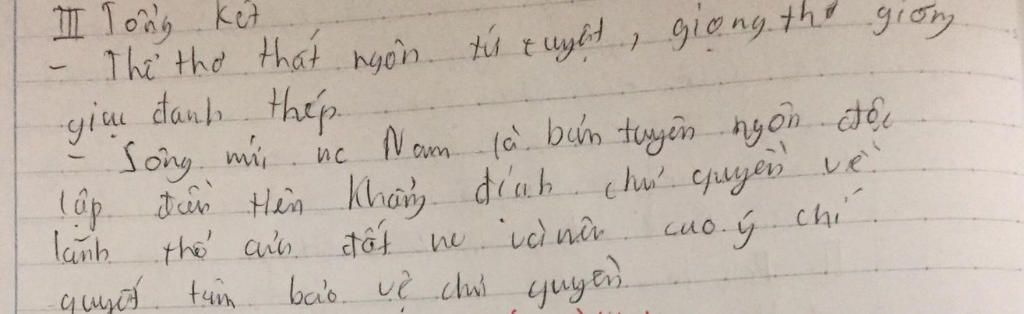 III Tổng kết
- Thể thơ thất ngôn tứ tuyệt, giọng thơ giõng
giạc đanh thép.
- Sông núi nc Nam là bản tuyên ngôn độc
lập đầu tiên khẳng định chủ quyền về
lãnh thổ của đất nc và nêu cao ý chí
quyết tâm bảo vệ chủ quyền